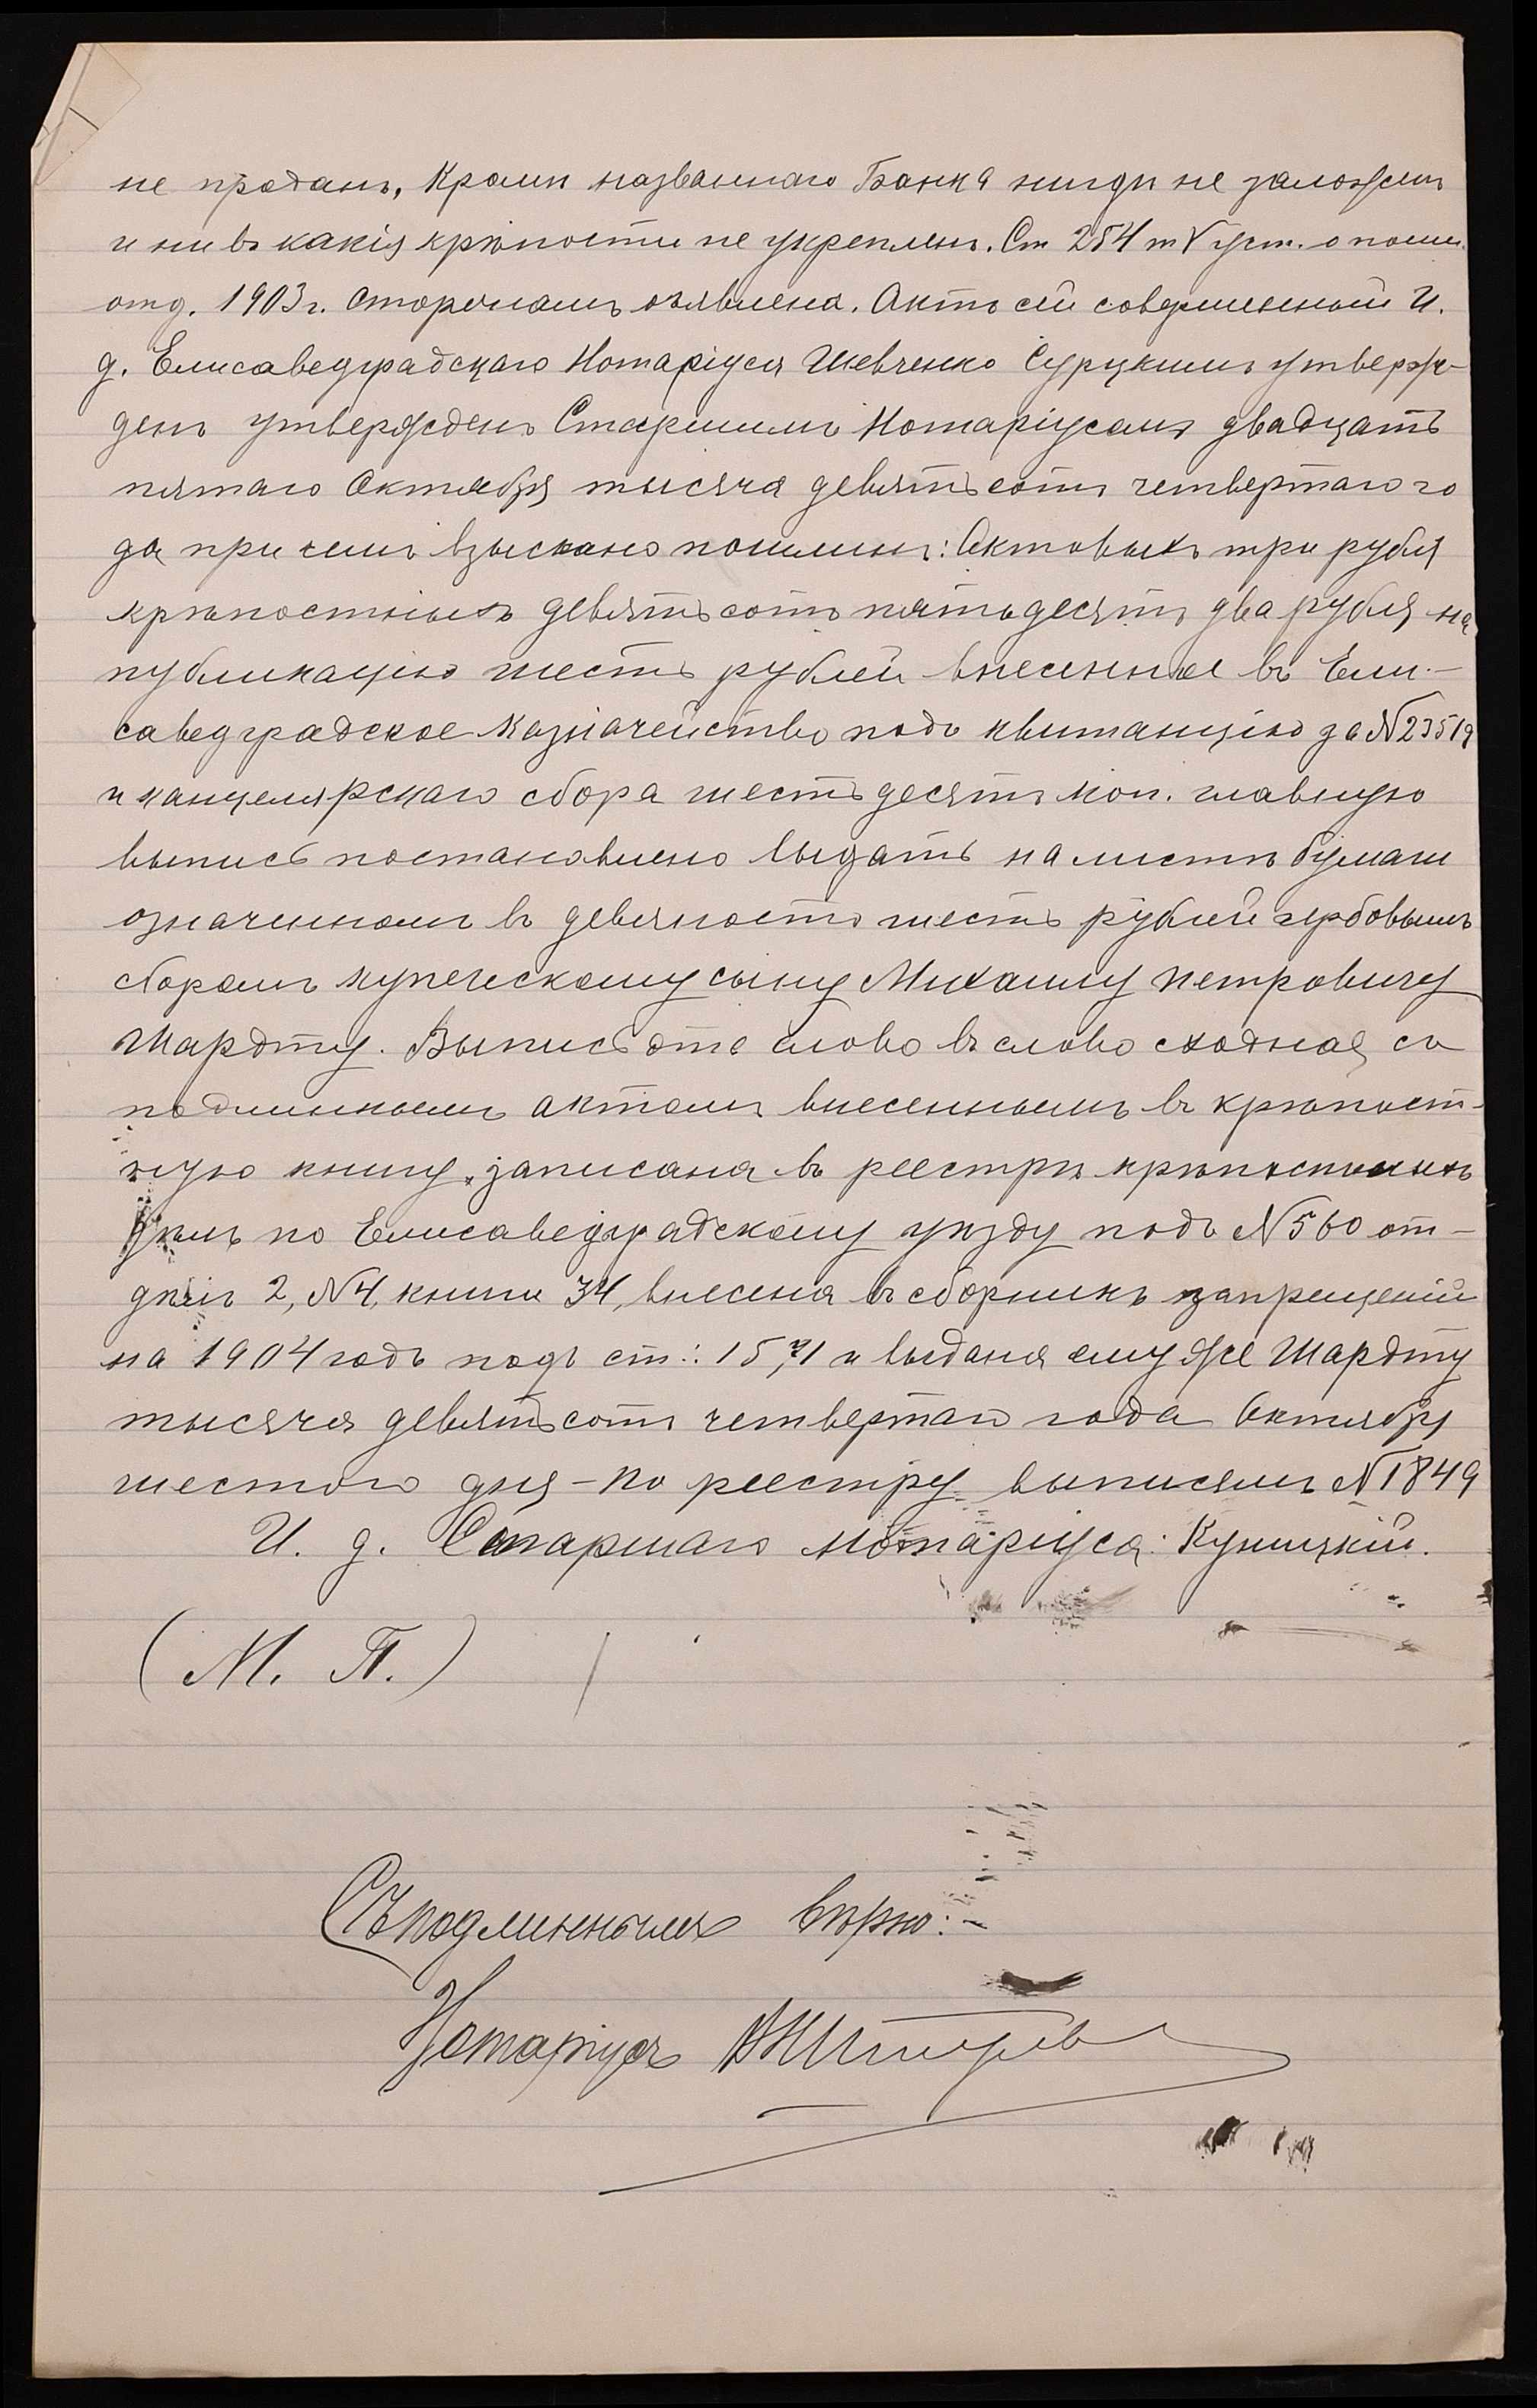 не проданъ, Кромѣ названнаго Банка нигдѣ не заложенъ
и ни въ какія крѣпости не укрепленъ. Ст 254 т V уст. о пошл.
отд. 1903 г. сторонамъ объявлена. Актъ сей совершенный И.
д. Елисаведградскаго Нотаріуса Шевченко Суруцкимъ утверж-
денъ утвержденъ Старшимъ Нотаріусомъ двадцать
пятаго Октября тысяча девятьсотъ четвертаго го
да при чемъ взыскано пошлинъ: Актовыхъ три рубля
крѣпостныхъ девятьсотъ пятьдесятъ два рубля на
публикацію шесть рублей внесенные въ Ели-
саведградское Казначейство подъ квитанцію за №23519
и канцелярскаго сбора шестьдесятъ коп. главную
выпись постановлено выдать на листѣ бумаги
означенномъ въ девяносто шесть рублей гербовымъ
сборомъ купеческому сыну Михаилу Петровичу
Шардту. Выпись эта слово въ слово сходная съ
подлиннымъ актомъ внесеннымъ въ крѣпост-
ную книгу, записана въ реестрѣ крѣпостныхъ
дѣлъ по Елисаведградскому уѣзду подъ №560 от-
дѣлъ 2, №4, книги 34, внесена въ сборникъ запрещеній
на 1904 годъ подъ ст: 15, и выдана ему же Шардту
тысяча девятьсотъ четвертаго года Октября
шестого дня - По реестру выписямъ №1849
И. д. Старшаго нотаріуса: Куницкій.
(М. П.)
Съ подлиннымъ вѣрно: -
Нотаріусъ